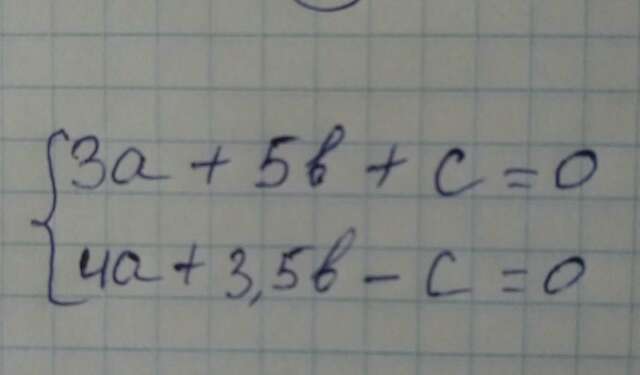 3a + 5b + c = 0
4a + 3,5b - c = 0